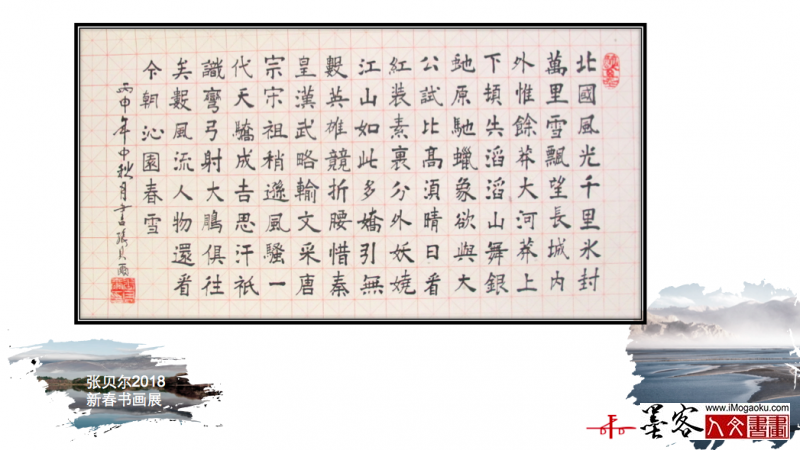 北國風光千里氷封
萬里雪飄望長城内
外惟餘莽大河莽上
下頓失滔滔山舞銀
虵原馳蠟象欲與大
公試比髙須晴日看
紅裝素裹分外妖嬈
江山如此多嬌引無
數英雄競折腰惜秦
皇漢武略輸文采唐
宗宋祖稍遜風騷一
代天驕成吉思汗祇
識彎弓射大鵰俱往
矣數風流人物還看
今朝沁園春雪
丙申年中秋月張貝爾
张贝尔2018
新春书画展
墨客
www.iMogaoku.com
人文書畫